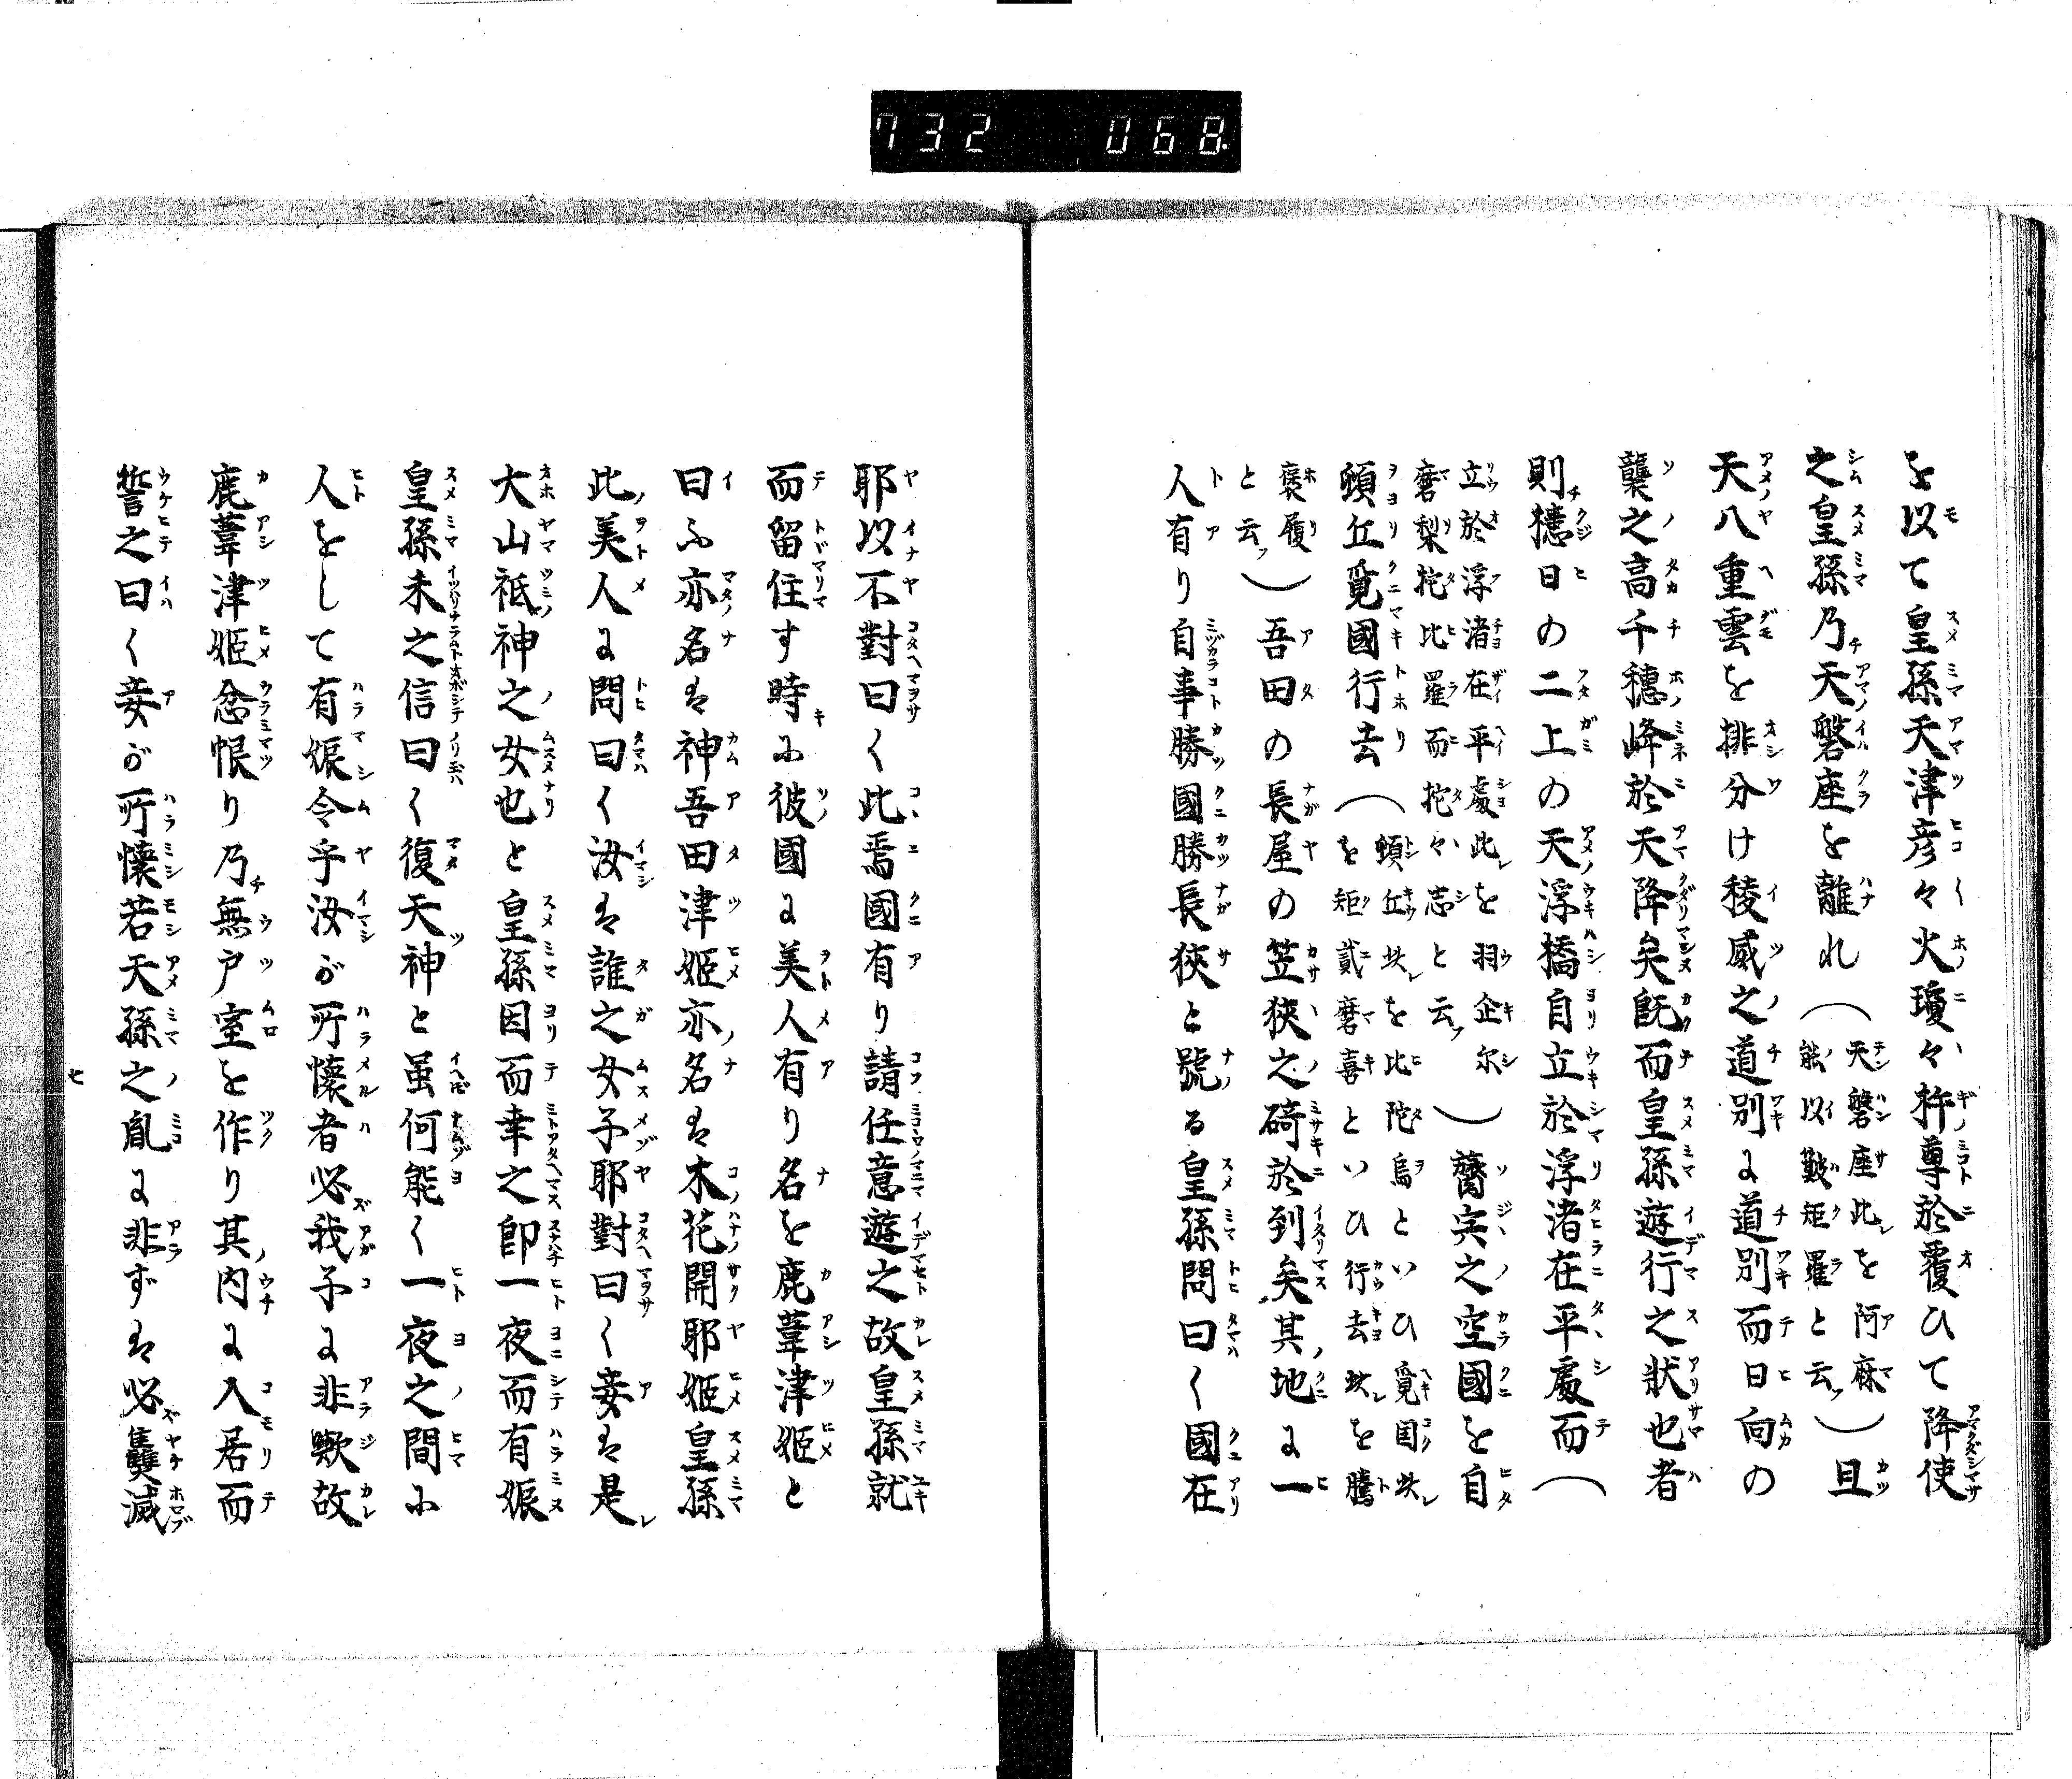 732 068
を以て皇孫天津彦々火瓊々杵尊於覆ひて降使
之皇孫乃天磐座を離れ(天磐座此を阿麻能以簸矩羅と云)且
天八重雲を排分け稜威之道別に道別而日向の
襲之高千穂峰於天降矣既而皇孫遊行之状也者
則槵日の二上の天浮橋自立於浮渚在平處而(
立於浮渚在平處此を羽企爾磨梨陀毗羅而陀々志と云)膂宍之空國を自
頓丘覓國行去(頓丘此を比陀烏といひ覓国此を矩貳磨喜といひ行去此を騰
褒履と云)吾田の長屋の笠狭之碕於到矣其地に一
人有り自事勝國勝長狹と號る皇孫問曰く國在
耶以不對曰く此焉國有り請任意遊之故皇孫就
而留住す時に彼國に美人有り名を鹿葦津姫と
曰ふ亦名は神吾田津姫亦名は木花開耶姫皇孫
此美人に問曰く汝は誰之女子耶對曰く妾は是
大山祇神之女也と皇孫因而幸之即一夜而有娠
皇孫未之信曰く復天神と虽何能く一夜之間に
人をして有娠令乎汝が所懐者必我子に非歟故
鹿葦津姫忿恨り乃無戸室を作り其内に入居而
誓之曰く妾が所懐若天孫之胤に非ずは必𤏲滅
七